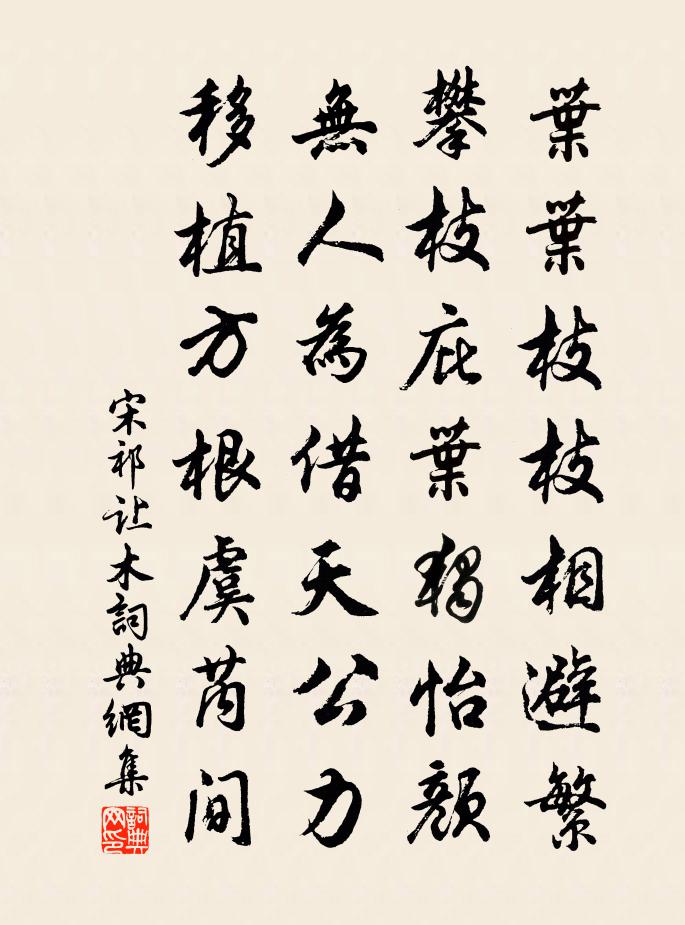 葉葉枝枝相避繁
攀枝庇葉獨怡顏
無人為借天公力
移植方根虞芮间
宋祁让木詞典網集
詞典网印